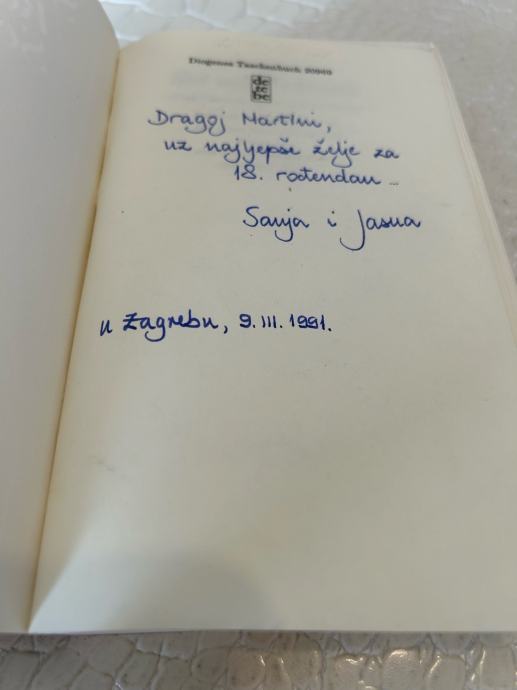 Diogenes Taschenbuch 20949
de
te
be
Dragoj Martini,
uz najljepše želje za
18. rođendan ...
Sanja i Jasna
u Zagrebu, 9. III. 1991.